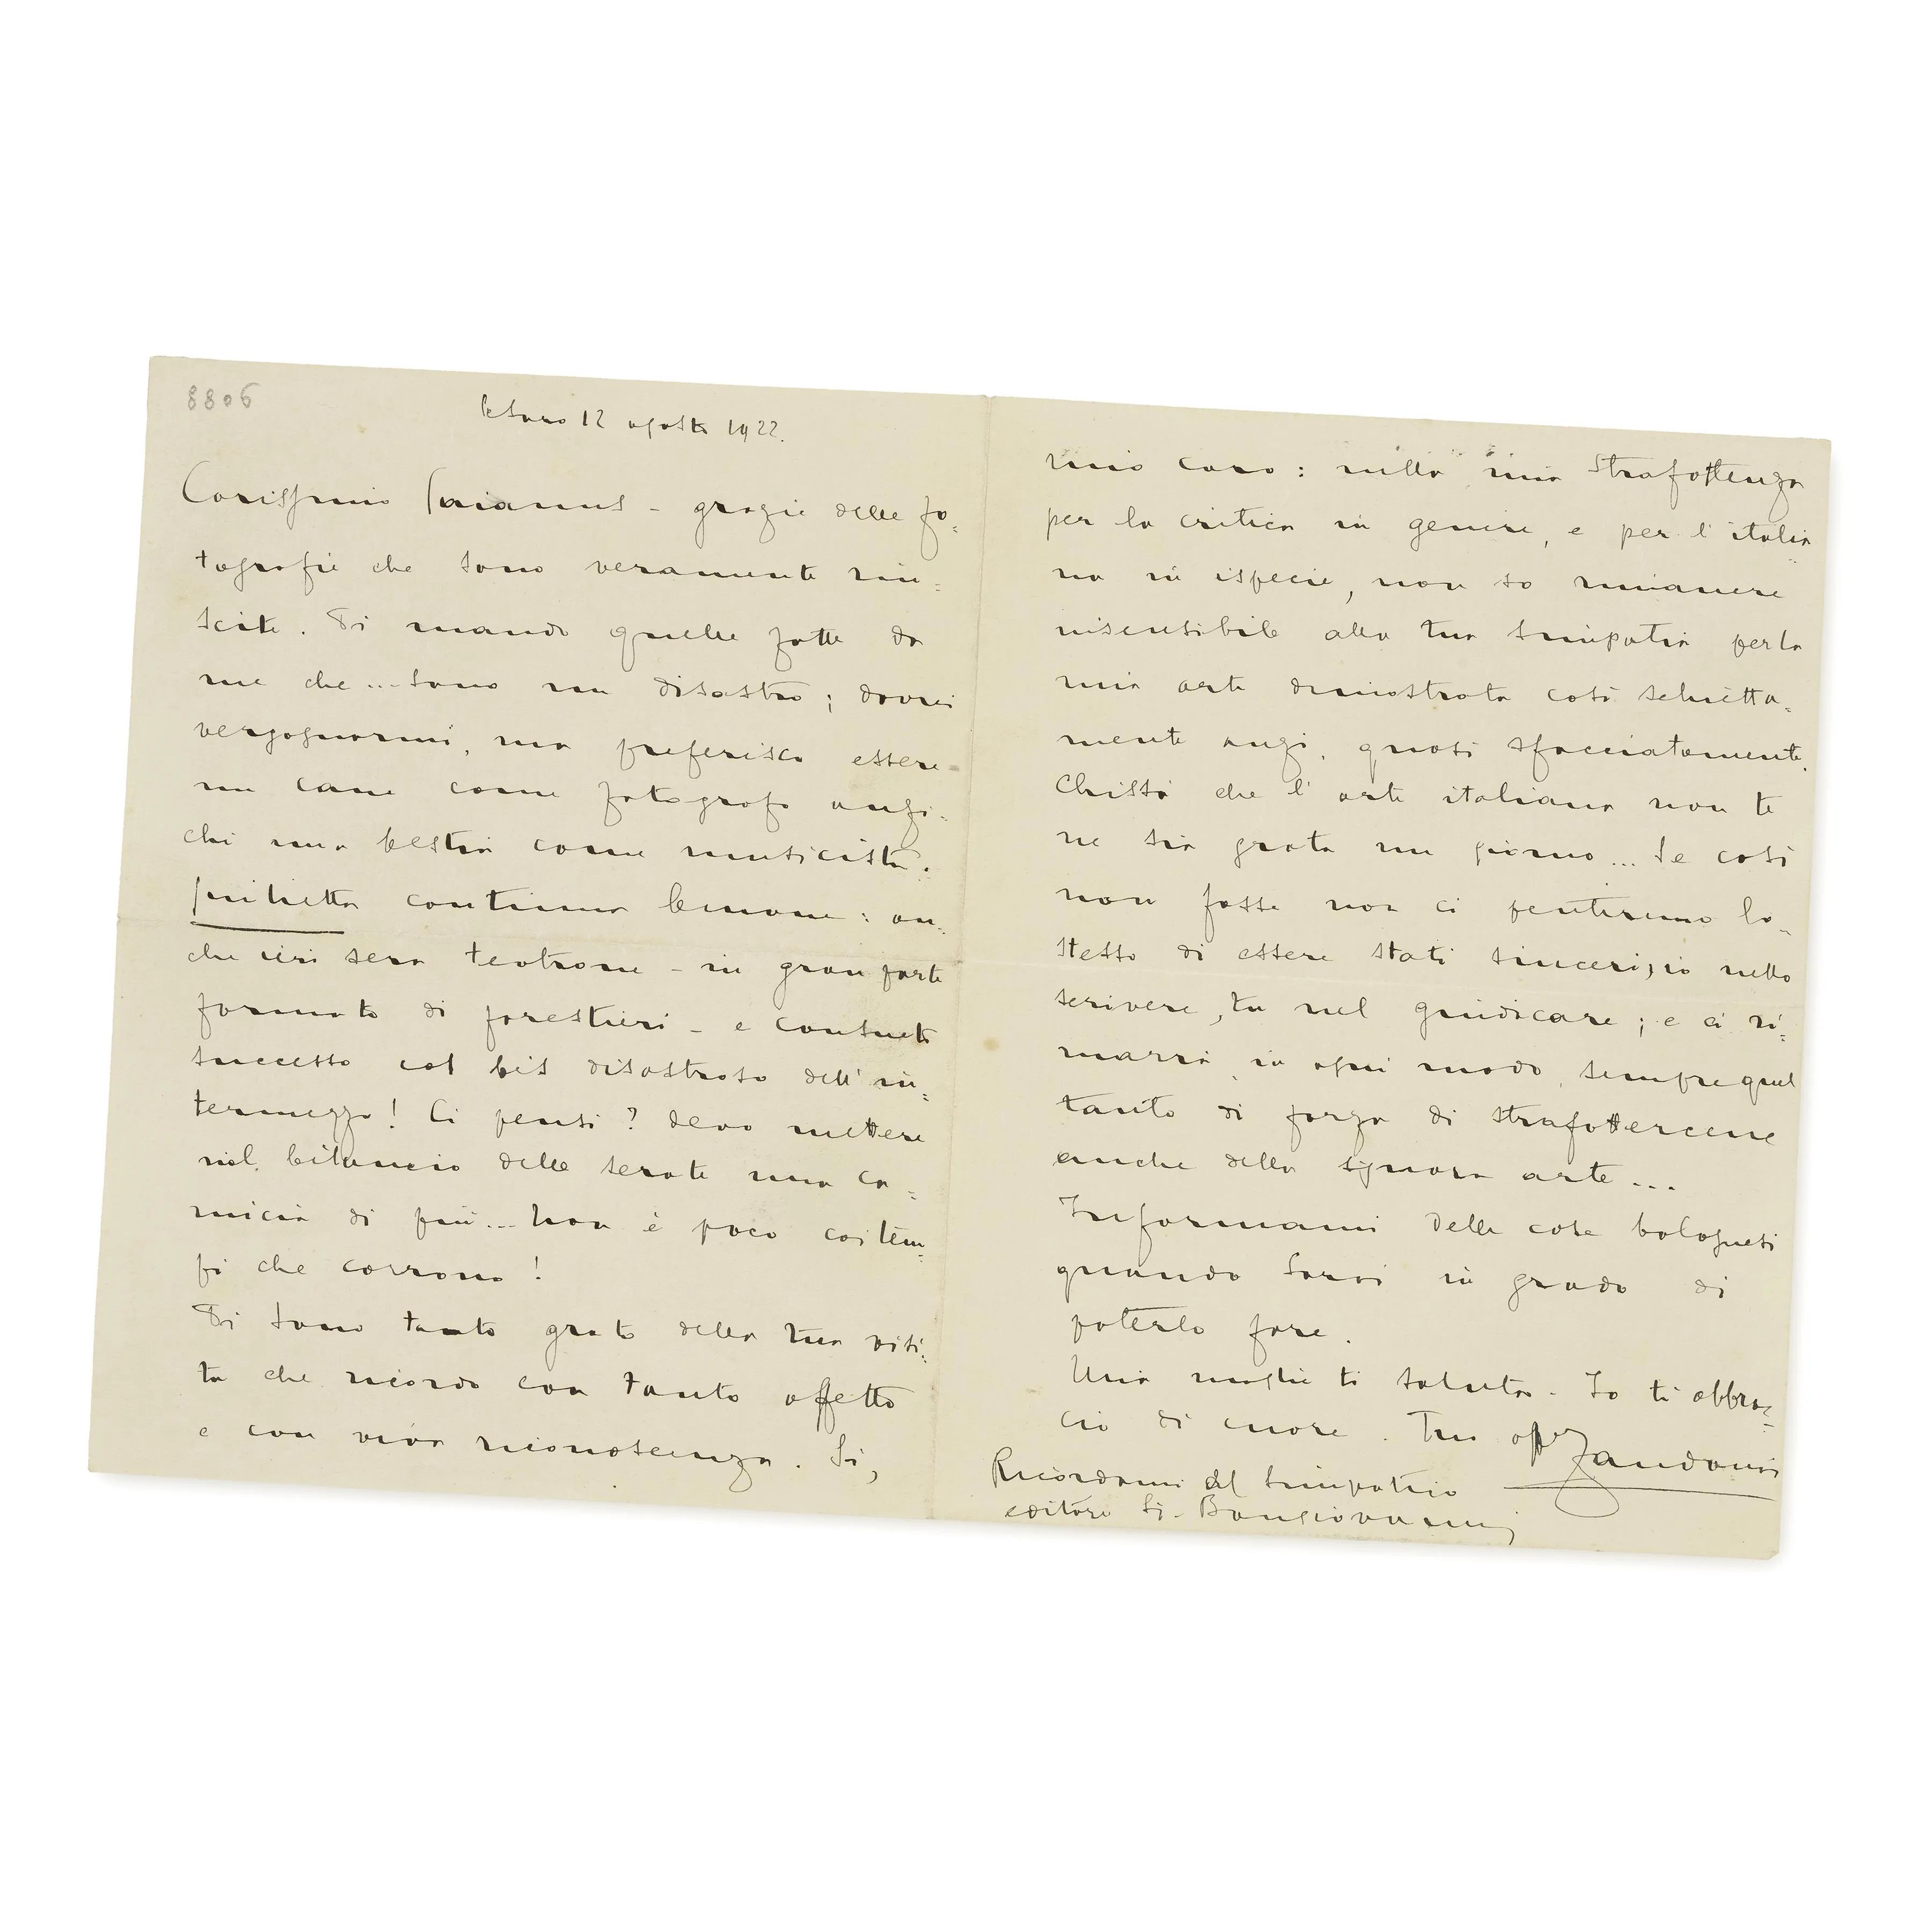 8806
Pesaro 12 agosto 1922.
Carissimo Paianus - grazie delle fo=
tografie che sono veramente riu=
scite. Ti mando quelle fatte da
me che ... sono un disastro; dovrei
vergognarmi, ma preferisco essere
un cane come fotografo anzi=
chè una bestia come musicista.
Giulietta continua benone: an=
che ieri sera teatrone - in gran parte
formato di forestieri - e consueto
successo col bis disastroso dell'in=
termezzo! Ci pensi? Devo mettere
nel bilancio delle serate una ca=
micia di più... non è poco coi tem=
pi che corrono!
Ti sono tanto grato della tua visi=
ta che ricordo con tanto affetto
e con viva riconoscenza. Sì,
mio caro: nella mia strafottenza
per la critica in genere, e per l'italia
na in ispecie, non so rimanere
insensibile alla tua simpatia per la
mia arte dimostrata così schietta=
mente anzi, quasi sfacciatamente.
Chissà che l'arte italiana non te
ne sia grata un giorno... Se così
non fosse non ci pentiremo lo
stesso di essere stati sinceri, io nello
scrivere, tu nel giudicare; e ci ri=
marrà, in ogni modo, sempre quel
tanto di forza di strafottercene
anche della signora arte...
Informami delle cose bolognesi
quando sarai in grado di
poterlo fare.
Mia moglie ti saluta. Io ti abbrac=
cio di cuore. Tuo aff Zandonai
Ricordami al simpatico
editore Sig. Bongiovanni